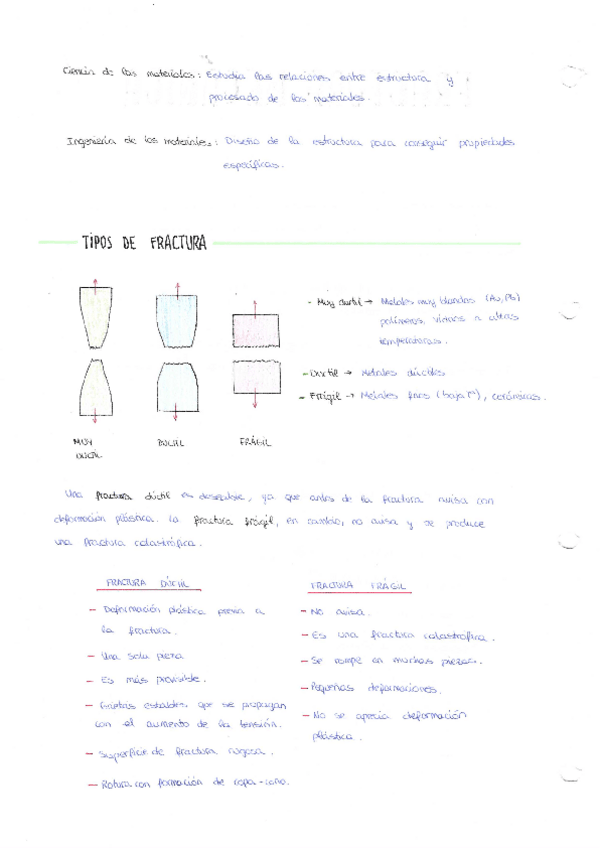 Ciencia de los materiales: Estudia las relaciones entre estructura y
procesado de los materiales.
Ingeniería de los materiales: Diseño de la estructura para conseguir propiedades
específicas.
TIPOS DE FRACTURA
- Muy dúctil → Metales muy blandos (Au, Pb)
polímeros, vidrios a altas
temperaturas.
- Dúctil → Metales dúctiles
- Frágil → Metales fríos (baja Tª), cerámicos.
MUY
DÚCTIL
DÚCTIL
FRÁGIL
Una fractura dúctil es deseable, ya que antes de la fractura avisa con
deformación plástica. La fractura frágil, en cambio, no avisa y se produce
una fractura catastrófica.
FRACTURA DÚCTIL
- Deformación plástica previa a
la fractura.
- Una sola pieza
- Es más previsible.
- Grietas estables que se propagan
con el aumento de la tensión.
- Superficie de fractura rugosa.
- Rotura con formación de copa-cono.
FRACTURA FRÁGIL
- No avisa.
- Es una fractura catastrófica.
- Se rompe en muchas piezas.
- Pequeñas deformaciones.
- No se aprecia deformación
plástica.